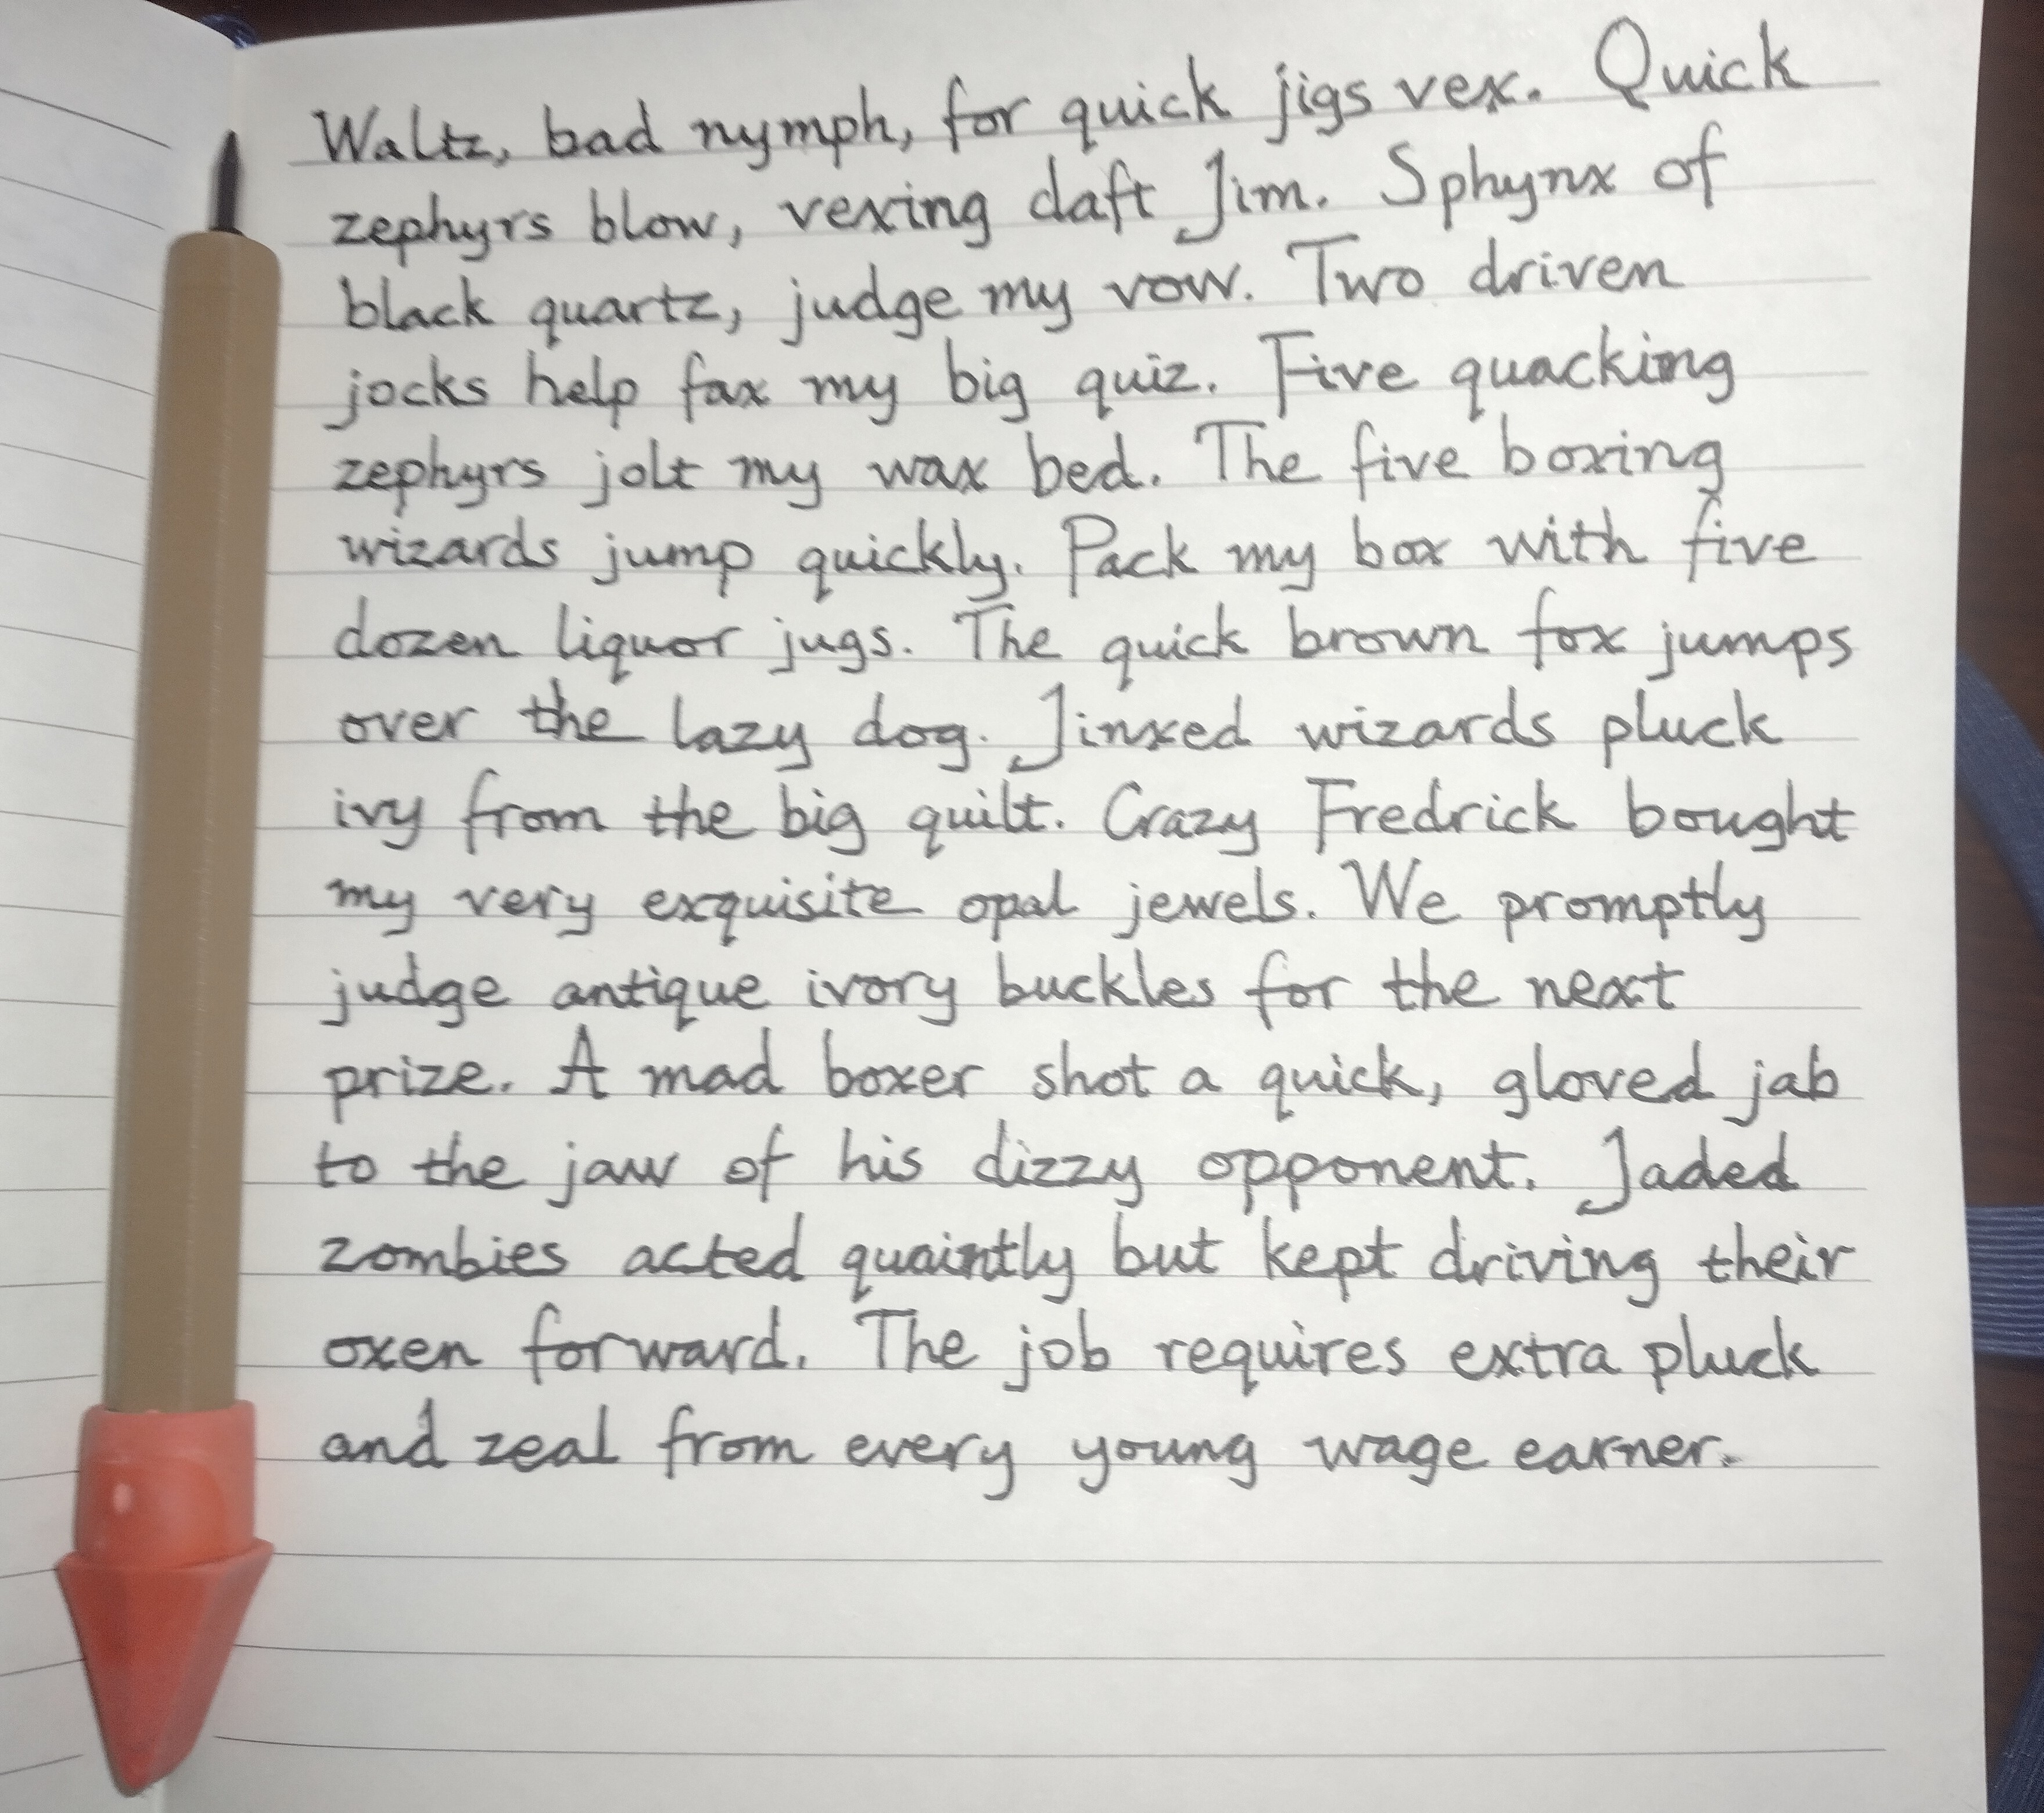 Waltz, bad nymph, for quick jigs vex. Quick
zephyrs blow, vexing daft Jim. Sphynx of
black quartz, judge my vow. Two driven
jocks help fax my big quiz. Five quacking
zephyrs jolt my wax bed. The five boxing
wizards jump quickly. Pack my box with five
dozen liquor jugs. The quick brown fox jumps
over the lazy dog. Jinxed wizards pluck
ivy from the big quilt. Crazy Fredrick bought
my very exquisite opal jewels. We promptly
judge antique ivory buckles for the next
prize. A mad boxer shot a quick, gloved jab
to the jaw of his dizzy opponent. Jaded
zombies acted quaintly but kept driving their
oxen forward. The job requires extra pluck
and zeal from every young wage earner.